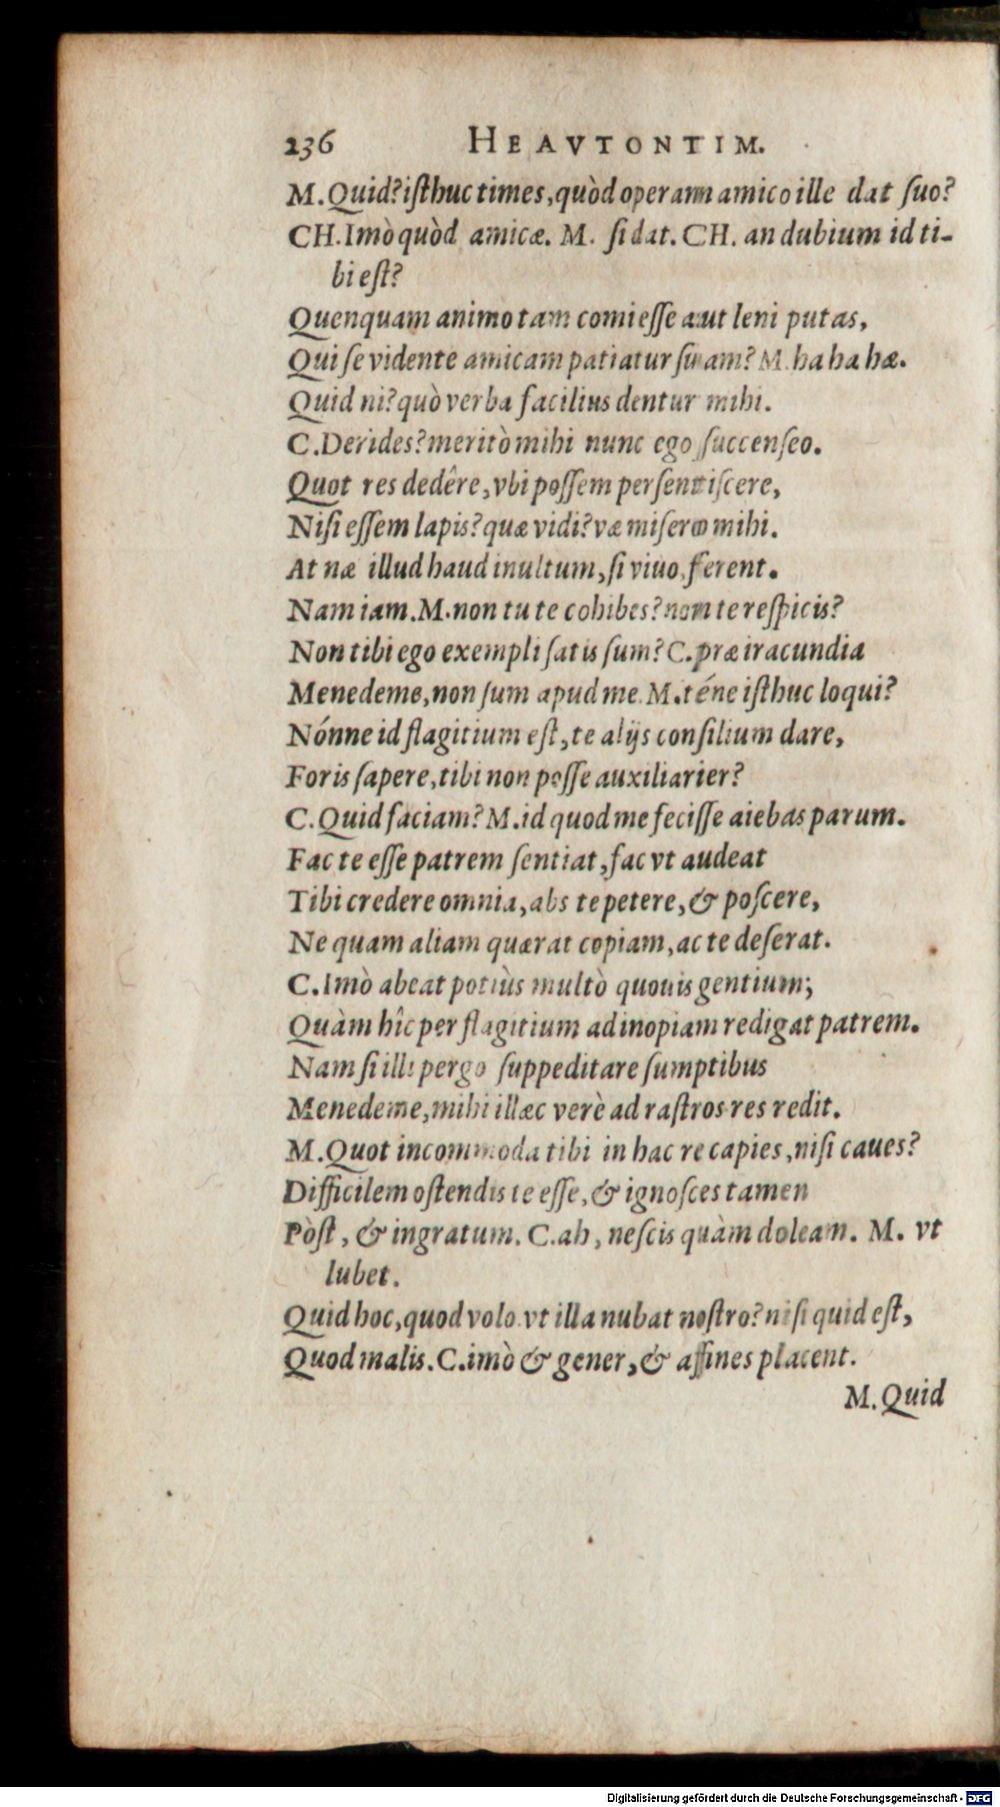 236 HEAVTONTIM.
M. Quid? iſthuc times, quòd operam amico ille dat ſuo?
CH. Imò quòd amicæ. M. ſi dat. CH. an dubium id ti-
bi eſt?
Quenquam animo tam comi eſſe aut leni putas,
Qui ſe vidente amicam patiatur ſuam? M. ha ha hæ.
Quid ni? quò verba facilius dentur mihi.
C. Derides? meritò mihi nunc ego ſuccenſeo.
Quot res dedêre, vbi poſſem perſentiſcere,
Niſi eſſem lapis? quæ vidi? væ miſero mihi.
At næ illud haud inultum, ſi viuo, ferent.
Nam iam. M. non tu te cohibes? non te reſpicis?
Non tibi ego exempli ſatis ſum? C. præ iracundia
Menedeme, non ſum apud me. M. téne iſthuc loqui?
Nónne id flagitium eſt, te alijs conſilium dare,
Foris ſapere, tibi non poſſe auxiliarier?
C. Quid faciam? M. id quod me feciſſe aiebas parum.
Fac te eſſe patrem ſentiat, fac vt audeat
Tibi credere omnia, abs te petere, & poſcere,
Ne quam aliam quærat copiam, ac te deſerat.
C. Imò abeat potiùs multò quouis gentium;
Quàm hîc per flagitium ad inopiam redigat patrem.
Nam ſi illi pergo ſuppeditare ſumptibus
Menedeme, mihi illæc verè ad raſtros res redit.
M. Quot incommoda tibi in hac re capies, niſi caues?
Difficilem oſtendis te eſſe, & ignoſces tamen
Pòſt, & ingratum. C. ah, neſcis quàm doleam. M. vt
lubet.
Quid hoc, quod volo vt illa nubat noſtro? niſi quid eſt,
Quod malis. C. imò & gener, & affines placent.
M. Quid
Digitalisierung gefördert durch die Deutsche Forschungsgemeinschaft - DFG